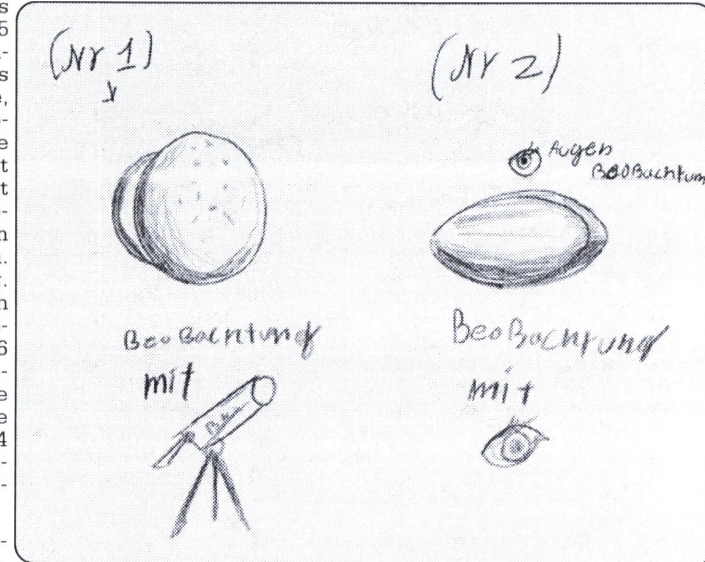 (Nr 1)
(Nr 2)
Augen
BeoBachtung
BeoBachtung
mit
BeoBachtung
mit